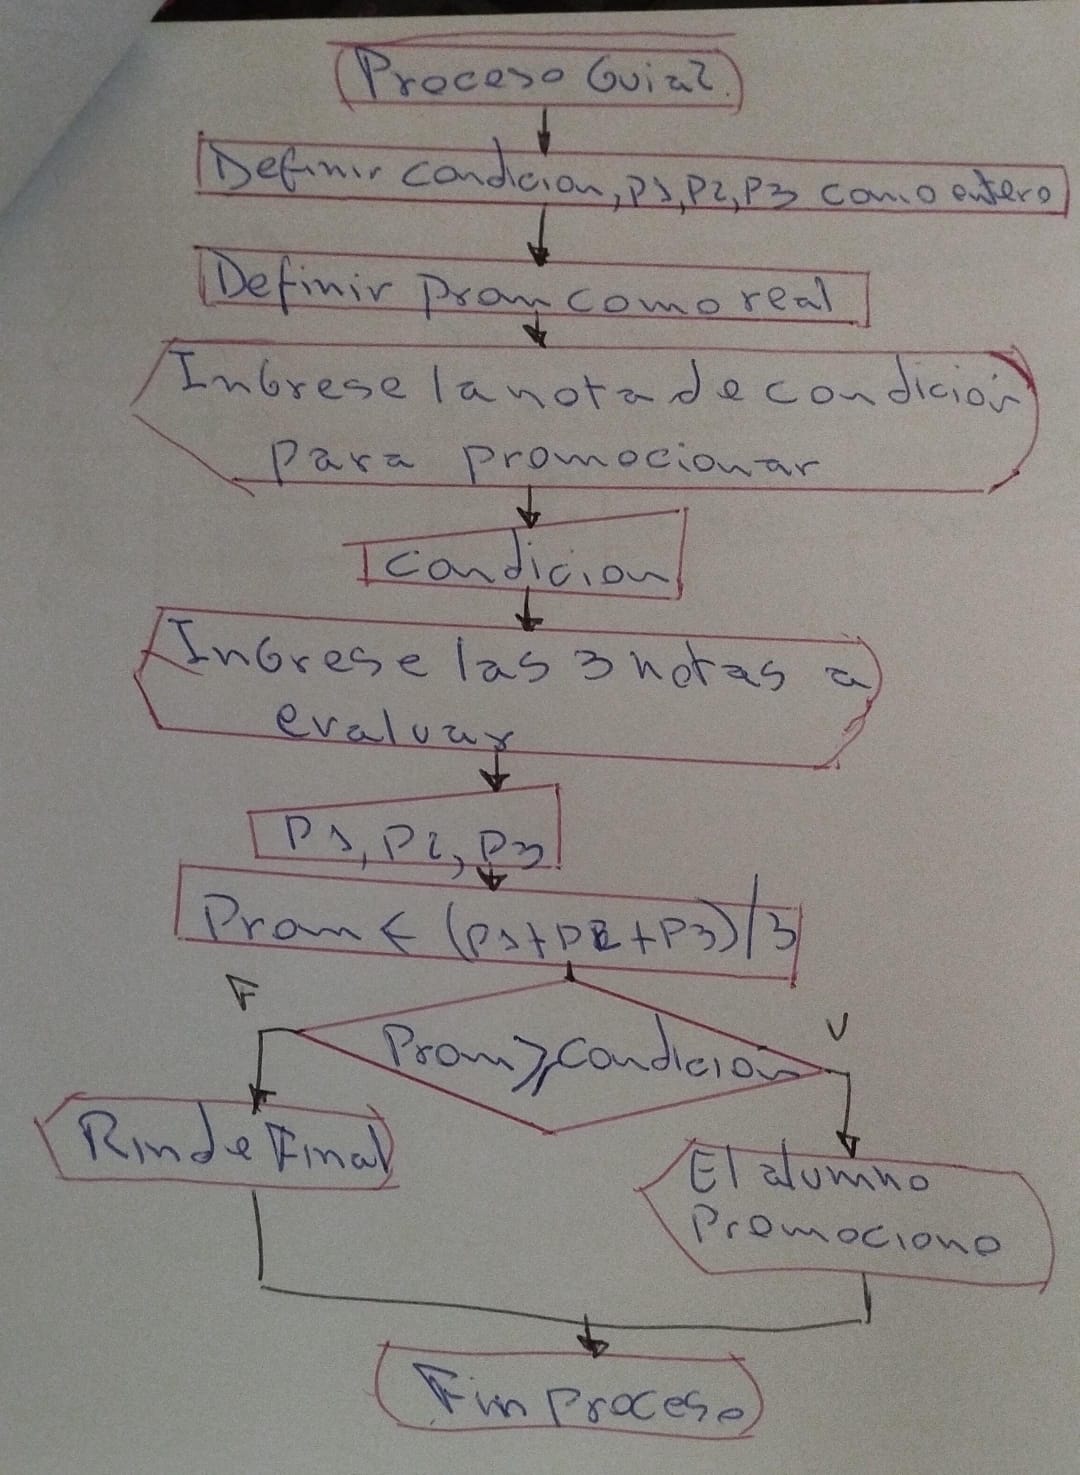 Proceso Guia2.
Definir condicion, P1, P2, P3 como entero
Definir prom como real
InGrese la nota de condición
para promocionar
condicion
InGrese las 3 notas a
evaluar
P1, P2, P3
Prom ← (P1+P2+P3)/3
F
V
Prom ⩾ condicion
Rinde Final
El alumno
Promociono
Fin Proceso